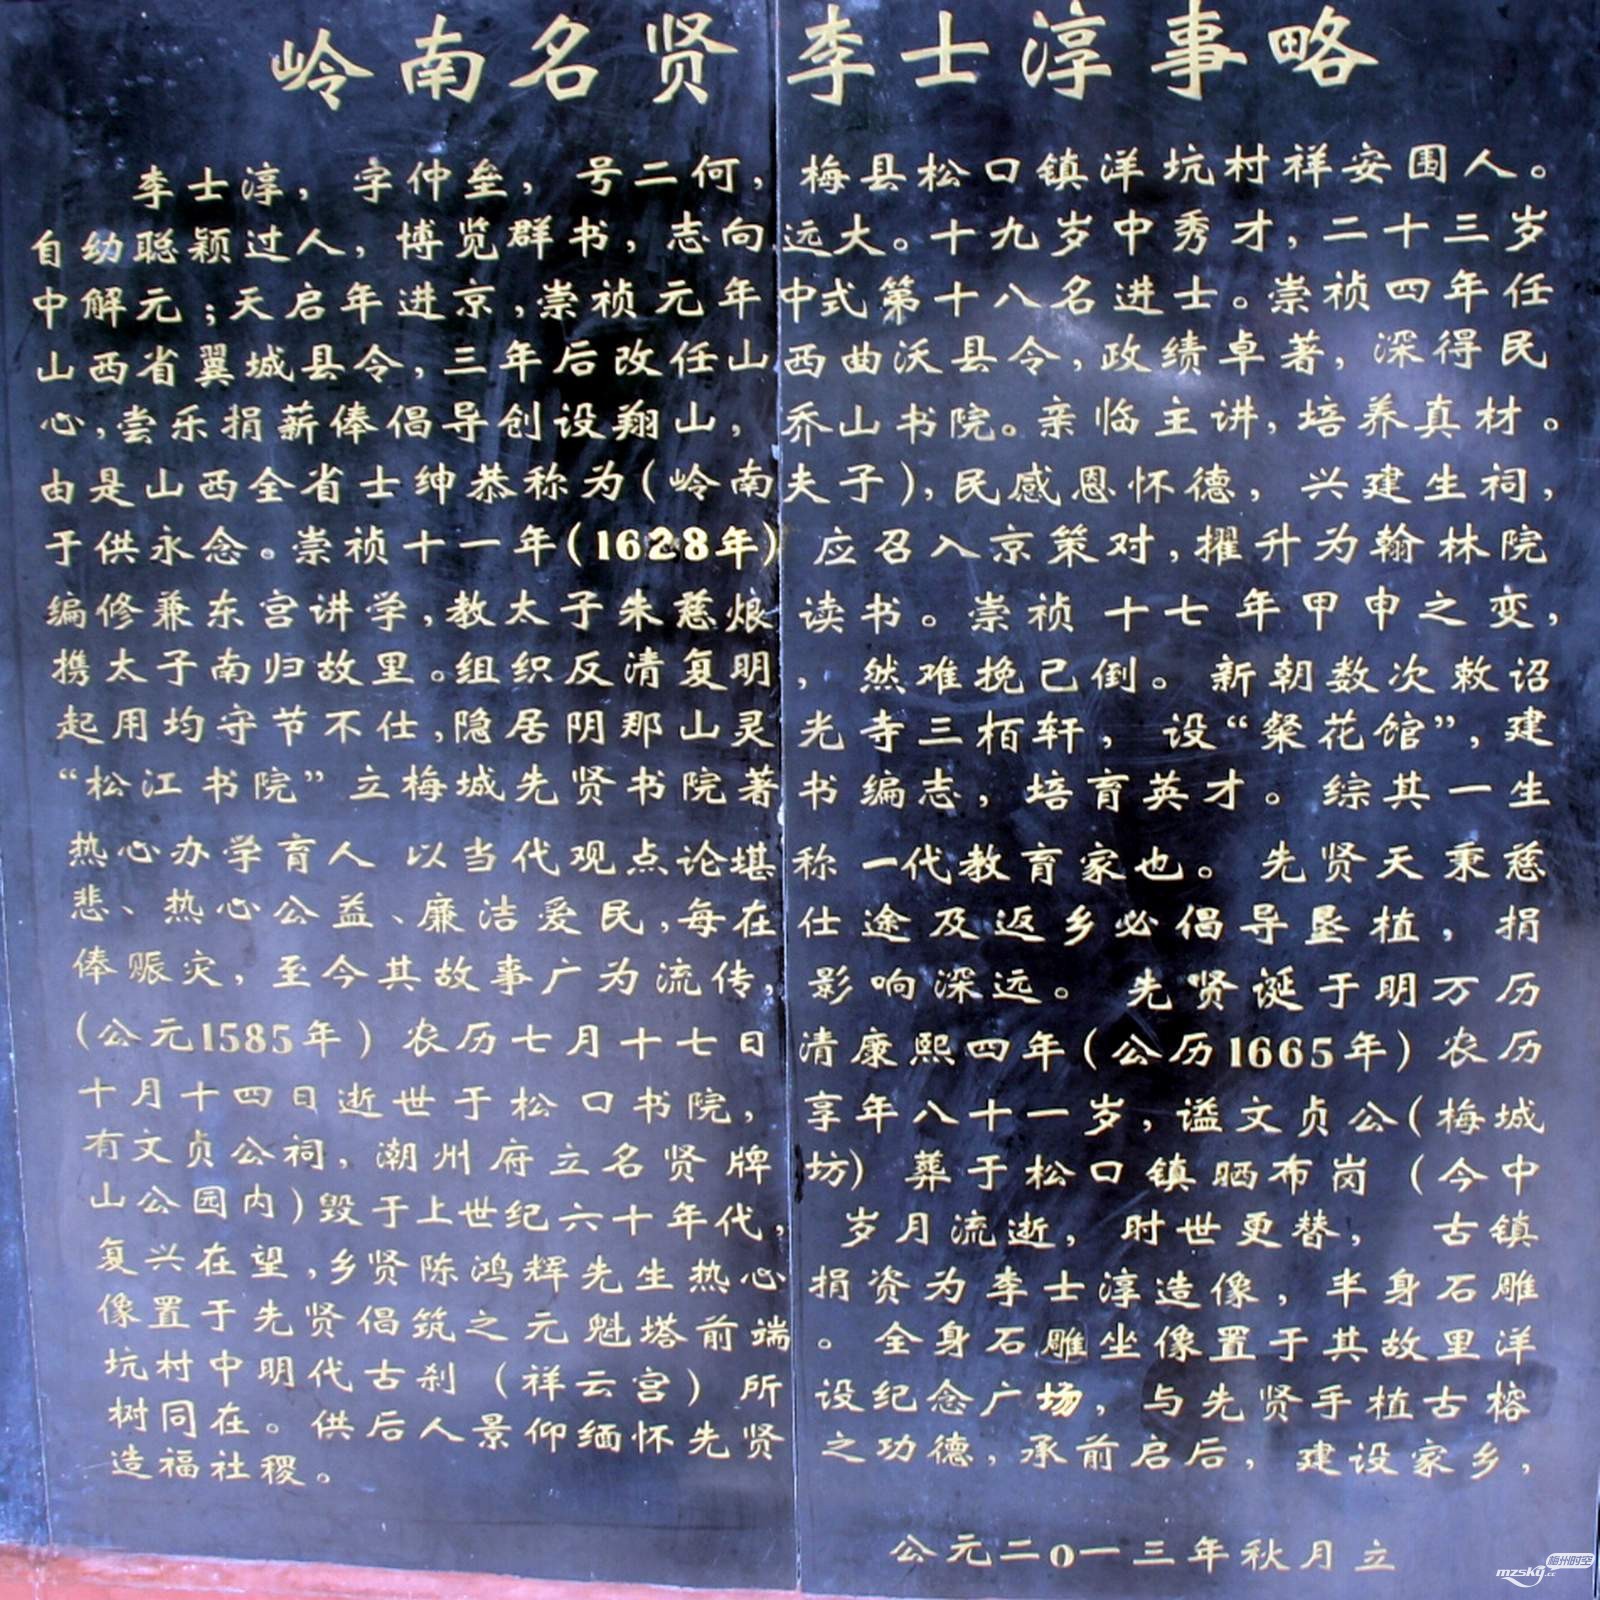 岭南名贤李士淳事略
李士淳，字仲垒，号二何，梅县松口镇洋坑村祥安围人。
自幼聪颖过人，博览群书，志向远大。十九岁中秀才，二十三岁
中解元；天启年进京，崇祯元年中式第十八名进士。崇祯四年任
山西省翼城县令，三年后改任山西曲沃县令，政绩卓著，深得民
心，尝乐捐薪俸倡导创设翔山，乔山书院。亲临主讲，培养真材。
由是山西全省士绅恭称为（岭南夫子），民感恩怀德，兴建生祠，
于供永念。崇祯十一年（1628年）应召入京策对，擢升为翰林院
编修兼东宫讲学，教太子朱慈烺读书。崇祯十七年甲申之变，
携太子南归故里。组织反清复明，然难挽己倒。新朝数次敕诏
起用均守节不仕，隐居阴那山灵光寺三栢轩，设“粲花馆”，建
“松江书院”立梅城先贤书院著书编志，培育英才。综其一生
热心办学育人 以当代观点论堪称一代教育家也。先贤天秉慈
悲、热心公益、廉洁爱民，每在仕途及返乡必倡导垦植，捐
俸赈灾，至今其故事广为流传，影响深远。先贤诞于明万历
（公元1585年）农历七月十七日清康熙四年（公历1665年）农历
十月十四日逝世于松口书院，享年八十一岁，谥文贞公（梅城
有文贞公祠，潮州府立名贤牌坊）葬于松口镇晒布岗（今中
山公园内）毁于上世纪六十年代，岁月流逝，时世更替，古镇
复兴在望，乡贤陈鸿辉先生热心捐资为李士淳造像，半身石雕
像置于先贤倡筑之元魁塔前端。全身石雕坐像置于其故里洋
坑村中明代古刹（祥云宫）所设纪念广场，与先贤手植古榕
树同在。供后人景仰缅怀先贤之功德，承前启后，建设家乡，
造福社稷。
公元二0一三年秋月立
梅州时空
mzsky.cc